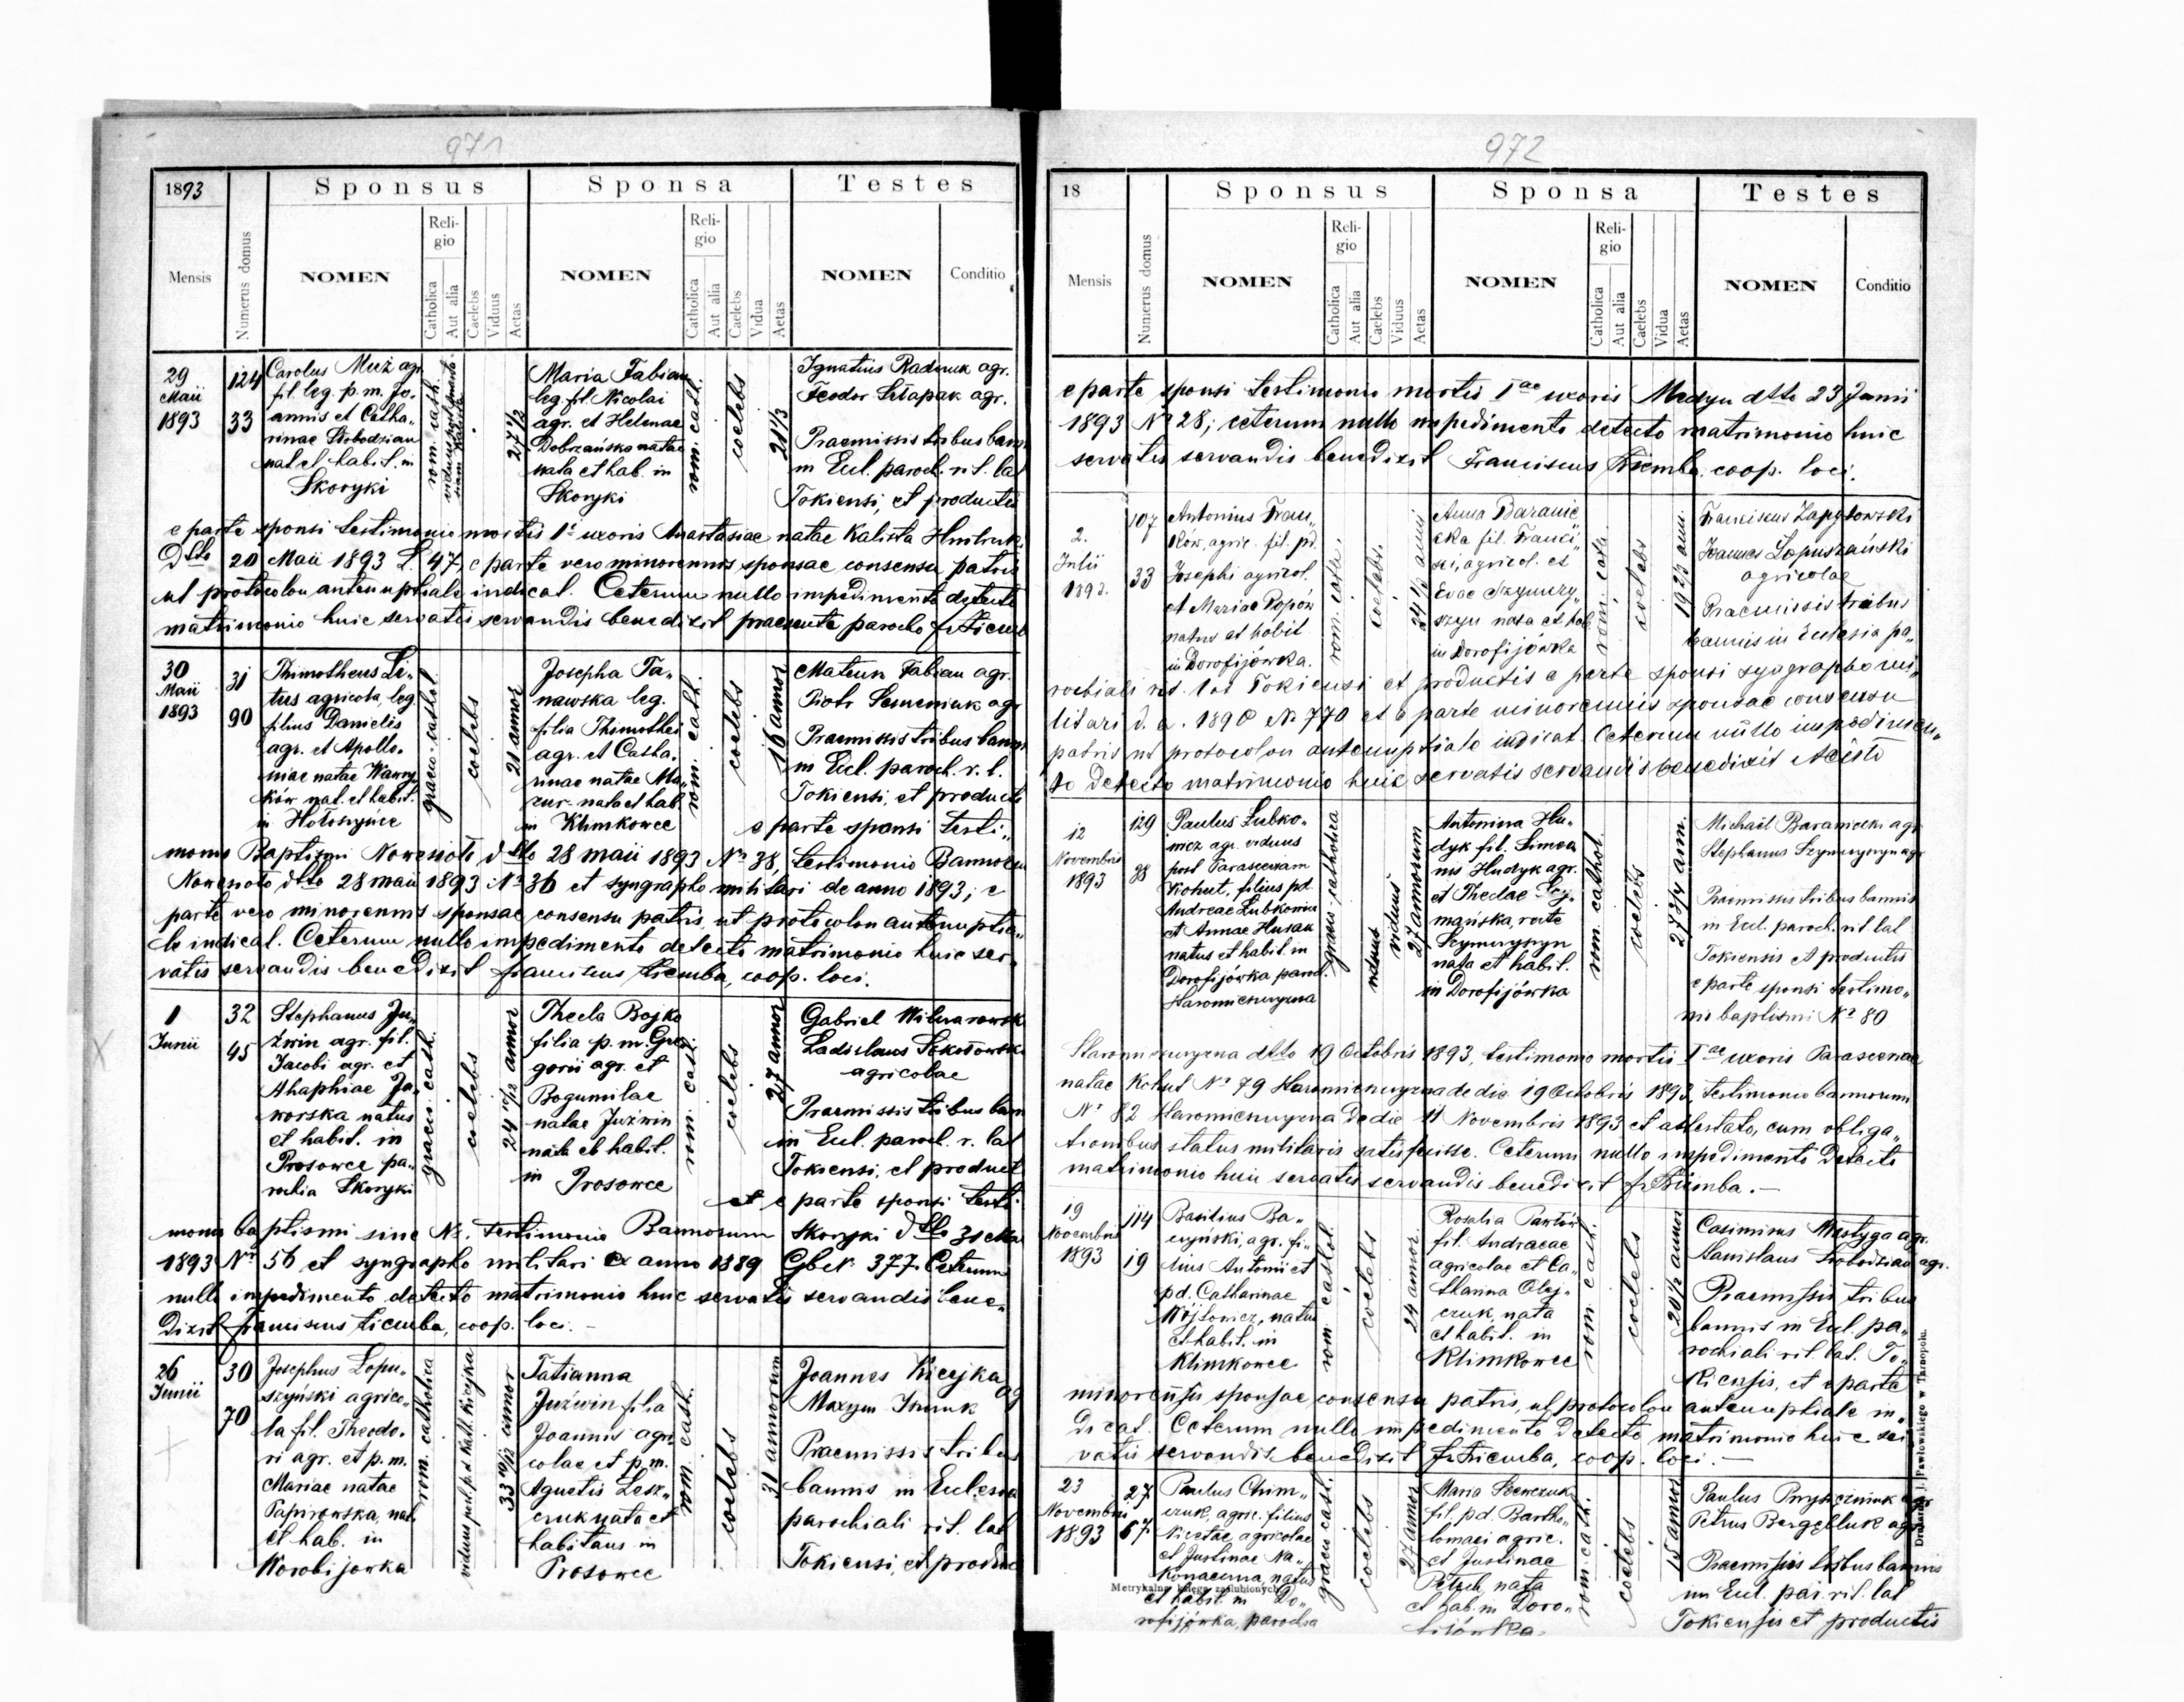 971
1893
Sponsus
Sponsa
Testes
Mensis
Numerus domus
NOMEN
Religio
Catholica
Aut alia
Caelebs
Viduus
Aetas
NOMEN
Religio
Catholica
Aut alia
Caelebs
Vidua
Aetas
NOMEN
Conditio
29
Maii
1893
124
33
Carolus Muż agr.
fil. leg. p. m. Jo„
annis et Catha„
rinae Słobodzian
nat. et habit. in
Skoryki
rom. cath.
27 1/2
Maria Fabian
leg. fil. Nicolai
agr. et Helenae
Dobrzańska natae
nata et hab. in
Skoryki
rom. cath.
coelebs
21 1/3
Ignatius Radniuk agr.
Feodor Setapak agr.
Praemissis tribus bann
in Eccl. paroch. rit. lat
Tokiensi, et productis
e parte sponsi testimonio mortis 1ae uxoris Anastasiae natae Kalista
Dtto 20 Maii 1893 L. 47, e parte vero minorennis sponsae consensu patris
ut protocolon antenuptiale indicat. Ceterum nullo impedimento detecto
matrimonio huic servatis servandis benedixit praesente parocho
30
Maii
1893
31
90
Thimotheus Li„
tus agricola, leg.
filius Danielis
agr. et Apollo„
niae natae Wawry„
ków nat. et habit.
in Hołoszyńce
graeco-cathol.
coelebs
21 annor
Josepha Ta„
nawska leg.
filia Thimothei
agr. et Catha„
rinae natae Ma„
zur nata et hab.
in Klimkowce
rom. cath.
coelebs
16 annor
Mateus Fabian agr.
Piotr Semeniuk agr
Praemissis tribus bannis
in Eccl. paroch. r. l.
Tokiensi, et productis
e parte sponsi testi„
monio Baptismi Nowesioło dtto 28 maii 1893 No 38, testimonio Bannorum
Nowesioło dtto 28 maii 1893 No 36 et syngrapho militari de anno 1893; e
parte vero minorennis sponsae consensu patris, ut protocolon antenuptia„
le indicat. Ceterum nullo impedimento detecto matrimonio huic ser„
vatis servandis benedixit Franciscus Ziemba, coop. loci.
1
Junii
32
45
Stephanus Ju„
źwin agr. fil.
Jacobi agr. et
Ahaphiae Ja„
worska natus
et habit. in
Prosowce pa„
rochia Skoryki
graeco. cath.
coelebs
24 10/12 annor
Thecla Bojko
filia p. m. Gre
gorii agr. et
Bogumilae
natae Juźwin
nata et habit.
in Prosowce
rom. cath.
coelebs
27 annor
Gabriel
Ladislaus Sokołowski
agricolae
Praemissis tribus bann
in Eccl. paroch. r. lat
Tokiensi, et product
et e parte sponsi testi
monio baptismi sine No. testimonio Bannorum Skoryki dtto 31 Mai
1893 No 56 et syngrapho militari ex anno 1889 377. Ceterum
nullo impedimento detecto matrimonio huic servatis servandis bene„
dixit Franciscus Ziemba, coop. loci.
26
Junii
30
70
Josephus Łopu„
szyński agrico„
la fil. Theodo„
ri agr. et p. m.
Mariae natae
Papirowska, nat.
et hab. in
Worobijówka
rom. catholica
viduus post p. d. Kath. Kicejka
33 10/12 annor
Tatianna
Juźwin filia
Joannis agri„
colae et p. m.
Agnetis Lesz„
czuk nata et
habitans in
Prosowce
rom. cath.
coelebs
31 annorum
Joannes Kicejka
Maxym
Praemissis tribus
bannis in Eclesia
parochiali rit. lat
Tokiensi, et produc
972
18
Sponsus
Sponsa
Testes
Mensis
Numerus domus
NOMEN
Religio
Catholica
Aut alia
Caelebs
Viduus
Aetas
NOMEN
Religio
Catholica
Aut alia
Caelebs
Vidua
Aetas
NOMEN
Conditio
e parte sponsi testimonio mortis Iae uxoris Medyn dtto 23 Junii
1893 No 28; ceterum nullo impedimento detecto matrimonio huic
servatis servandis benedixit Franciscus Ziemba coop. loci.
2.
Julii
1893.
107
33
Antonius Fran„
ków, agric. fil. pd.
Josephi agricol.
et Mariae Popów
natus et habit
in Dorofijówka.
rom. cath.
coelebs.
24 1/2 anni
Anna Baranie
cka fil. Franci„
sci, agricol. et
Evae Szymczy„
szyn nata et hab
in Dorofijówka
rom. cath.
coelebs
19 2/3 ann.
Franciscus Zapytowski
Joannes Łopuszański
agricolae
Praemissis tribus
bannis in Eclesia pa„
rochiali rit. lat Tokiensi et productis e parte sponsi sygrapho mi„
litari d. a. 1890 No 770 et e parte minorennis sponsae consensu
patris ut protocolon antenuptiale indicat. Ceterum nullo impedimen„
to detecto matrimonio huic servatis servandis benedixit
12
Novembris
1893
129
38
Paulus Łubko„
wicz agr. viduus
post Parascevam
Kohut, filius pd.
Andreae Łubkowicz
et Annae Husak
natus et habit. in
Dorofijówka paroch.
Staromiejszczyzna
graeco-catholica
viduus
viduus
27 annorum
Antonina Hu„
dyk fil. Simeo
nis Hudyk agr.
et Theclae Szy„
mańska, recte
Szymczyszyn
nata et habit.
in Dorofijówka
rom. cathol.
coelebs
27 3/4 ann.
Michaël Baraniecki agr
Stephanus Szymczyszyn agr
Praemissis tribus bannis
in Eccl. paroch. rit lat
Tokiensis et productis
e parte sponsi testimo„
nio baptismi No 80
Staromiejszczyzna dtto 19 Octobris 1893, testimonio mortis Iae uxoris Parascevae
natae Kohut No 79 Staromiejszczyzna de die 19 Octobris 1893, testimonio bannorum
No 82 Staromiejszczyzna de die 11 Novembris 1893 et attestato, cum obliga„
tionibus status militaris satisfecisse. Ceterum nullo impedimento detecto
matrimonio huic servatis servandis benedixit fr Ziemba.—
19
Novembris
1893
114
19
Basilius Ba„
czyński, agr. fi„
lius Antonii et
pd. Catharinae
Wójtowicz, natus
et habit. in
Klimkowce
rom. cathol.
coelebs
24 annor
Rosalia Pawłów
fil. Andreae
agricolae et Ca„
tharina Olej„
czuk, nata
et habit. in
Klimkowce
rom. cath.
coelebs
20 1/2 annor
Casimirus Mustyga agr.
Stanislaus Słobodzian agr.
Praemissis tribus
bannis in Eccl. pa„
rochiali rit. lat. To„
kiensis, et e parte
minorensis sponsae consensu patris, ut protocolon antenuptiale in„
dicat. Ceterum nullo impedimento detecto matrimonio huic ser
vatis servandis benedixit fr Ziemba, coop. loci.—
23
Novembris
1893
27
67
Paulus Chim„
czuk, agric. filius
Nicetae agricolae
et Justinae Na„
konaczna, natus
et habit. in Do„
rofijówka, parochia
graeco cath.
coelebs
27 annor
Maria Szewczuk
fil. pd. Bartho„
lomaei agric.
et Justinae
Petech nata
et hab. in Doro„
fijówka
rom. cath.
coelebs
annor
Paulus agr
Petrus agr
Praemissis tribus bannis
in Eccl. par. rit. lat
Tokiensis et productis
Metrykalna księga zaślubionych
Drukarnia J. Pawłowskiego w Tarnopolu.